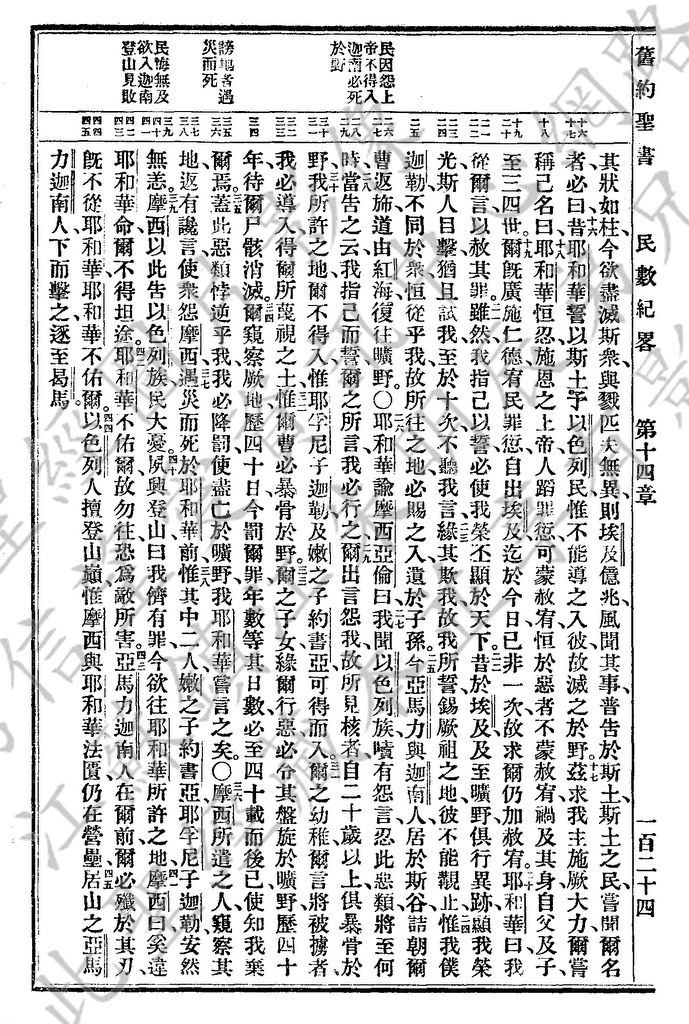 舊約聖書 民數紀畧 第十四章 一百二十四
民因怨上
帝不得入
迦南必死
於野
謗地者遇
災而死
民悔無及
欲入迦南
登山見敗
其狀如杜今欲盡滅斯衆與戮匹夫無異則埃及億兆風聞其事普告於斯土斯土之民嘗聞爾名
者必曰昔耶和華誓以斯土予以色列民惟不能導之入彼故滅之於野兹求我主施厥大力爾嘗
稱己名曰耶和華恒忍施恩之上帝人蹈罪愆可蒙赦宥恒於惡者不蒙赦宥禍及其身自父及子
至三四世爾旣廣施仁德宥民罪愆自出埃及迄於今日已非一次故求爾仍加赦宥耶和華曰我
從爾言以赦其罪雖然我指己以誓必使我榮丕顯於天下昔於埃及及至曠野俱行異跡顯我榮
光斯人目擊猶且試我至於十次不聽我言緣其欺我故我所誓錫厥祖之地彼不能觀止惟我僕
迦勒不同於衆恒從乎我故所往之地必賜之入遺於子孫今亞馬力與迦南人居於斯谷詰朝爾
曹返旆道由紅海復往曠野〇耶和華諭摩西亞倫曰我聞以色列族嘖有怨言忍此惡類將至何
時當告之云我指己而誓爾之所言我必行之爾出言怨我故所見核者自二十歲以上俱暴骨於
野我所許之地爾不得入惟耶孚尼子迦勒及嫩之子約書亞可得而入爾之幼稚爾言將被擄者
我必導入得爾所蔑視之土惟爾曹必暴骨於野爾之子女緣爾行惡必令其盤旋於曠野歷四十
年待爾尸骸消滅爾窺察厥地歷四十日今罰爾罪年數等其日數必至四十載而後已使知我棄
爾焉蓋此惡類悖逆乎我我必降罰使盡亡於曠野我耶和華嘗言之矣〇摩西所遣之人窺察其
地返有讒言使衆怨摩西遇災而死於耶和華前惟其中二人嫩之子約書亞耶孚尼子迦勒安然
無恙摩西以此告以色列族民大憂夙興登山曰我儕有罪今欲往耶和華所許之地摩西曰奚違
耶和華命爾不得坦途耶和華不佑爾故勿往恐爲敵所害亞馬力迦南人在爾前爾必殲於其刃
旣不從耶和華耶和華不佑爾以色列人擅登山巔惟摩西與耶和華法匱仍在營壘居山之亞馬
力迦南人下而擊之逐至曷馬